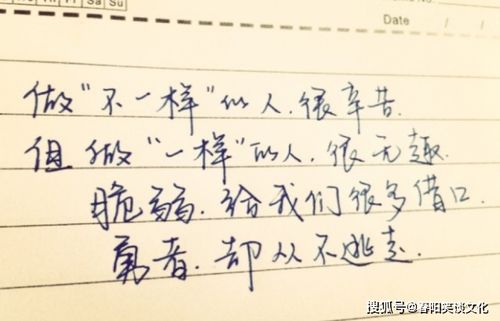 Th Fr Sa Su
Date / /
做"不一样"的人.很辛苦.
但做"一样"的人.很无趣.
脆弱.给我们很多借口.
勇者.却从不逃走.
搜狐号@春阳笑谈文化